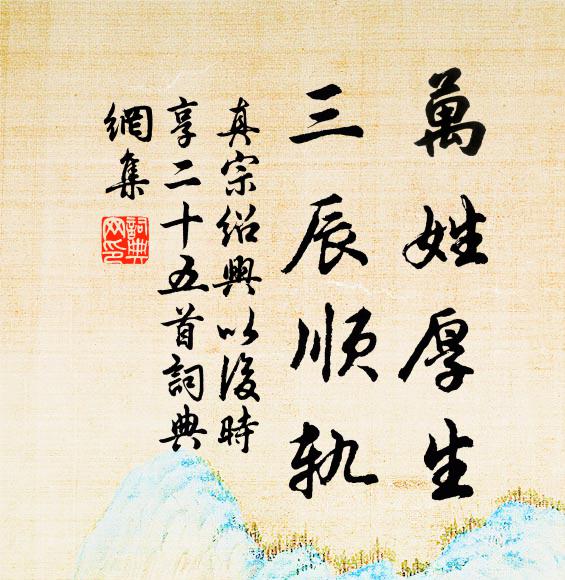 萬姓厚生
三辰順軌
真宗紹興以後時
享二十五首詞典
網集
詞典
网印